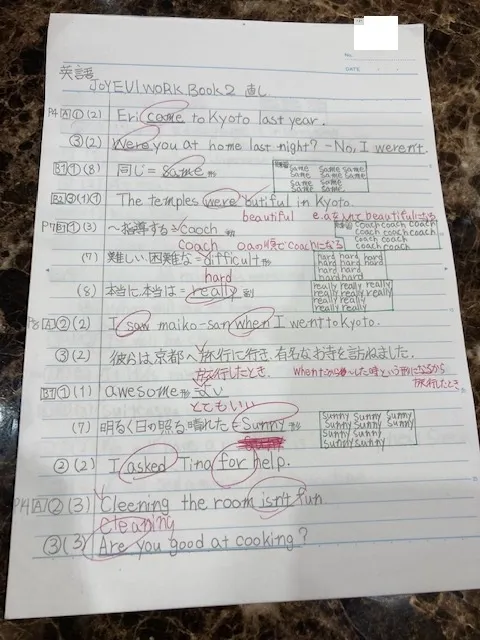 NO.
DATE
英語
JOYFUL WORK Book 2 直し
P4 A ① (2) Eri came to Kyoto last year.
③ (2) Were you at home last night? - No, I weren't.
B1 ① (8) 同じ = same 形
same same same
same same
same same
same same
The temples were butiful in Kyoto.
beautiful e.a.を入れて beautifulになる
(3) ~指導する = cooch
coach oaの順でcoachになる
coach coach coach
coach coach
coach coach
coach coach
(7) 難しい、困難な = difficult 形
hard
hard hard hard
hard hard
hard hard
hard hard
(8) 本当に、本当は = really 副
really really
really really really
really really
really
P8 A ② (2) I saw maiko-san when I went to Kyoto.
③ (2) 彼らは京都へ旅行に行き、有名なお寺を訪ねました。
旅行したとき、
旅行したとき
B1 ① (1) awesome 形
とてもいい
(7) 明るく日の照る、晴れた = Sunny 形
Sunny Sunny Sunny
Sunny Sunny
Sunny Sunny
Sunny Sunny
② (2) I asked Tina for help.
P14 A ② (3) Cleening the room isn't fun
cleaning
③ (3) Are you good at cooking?